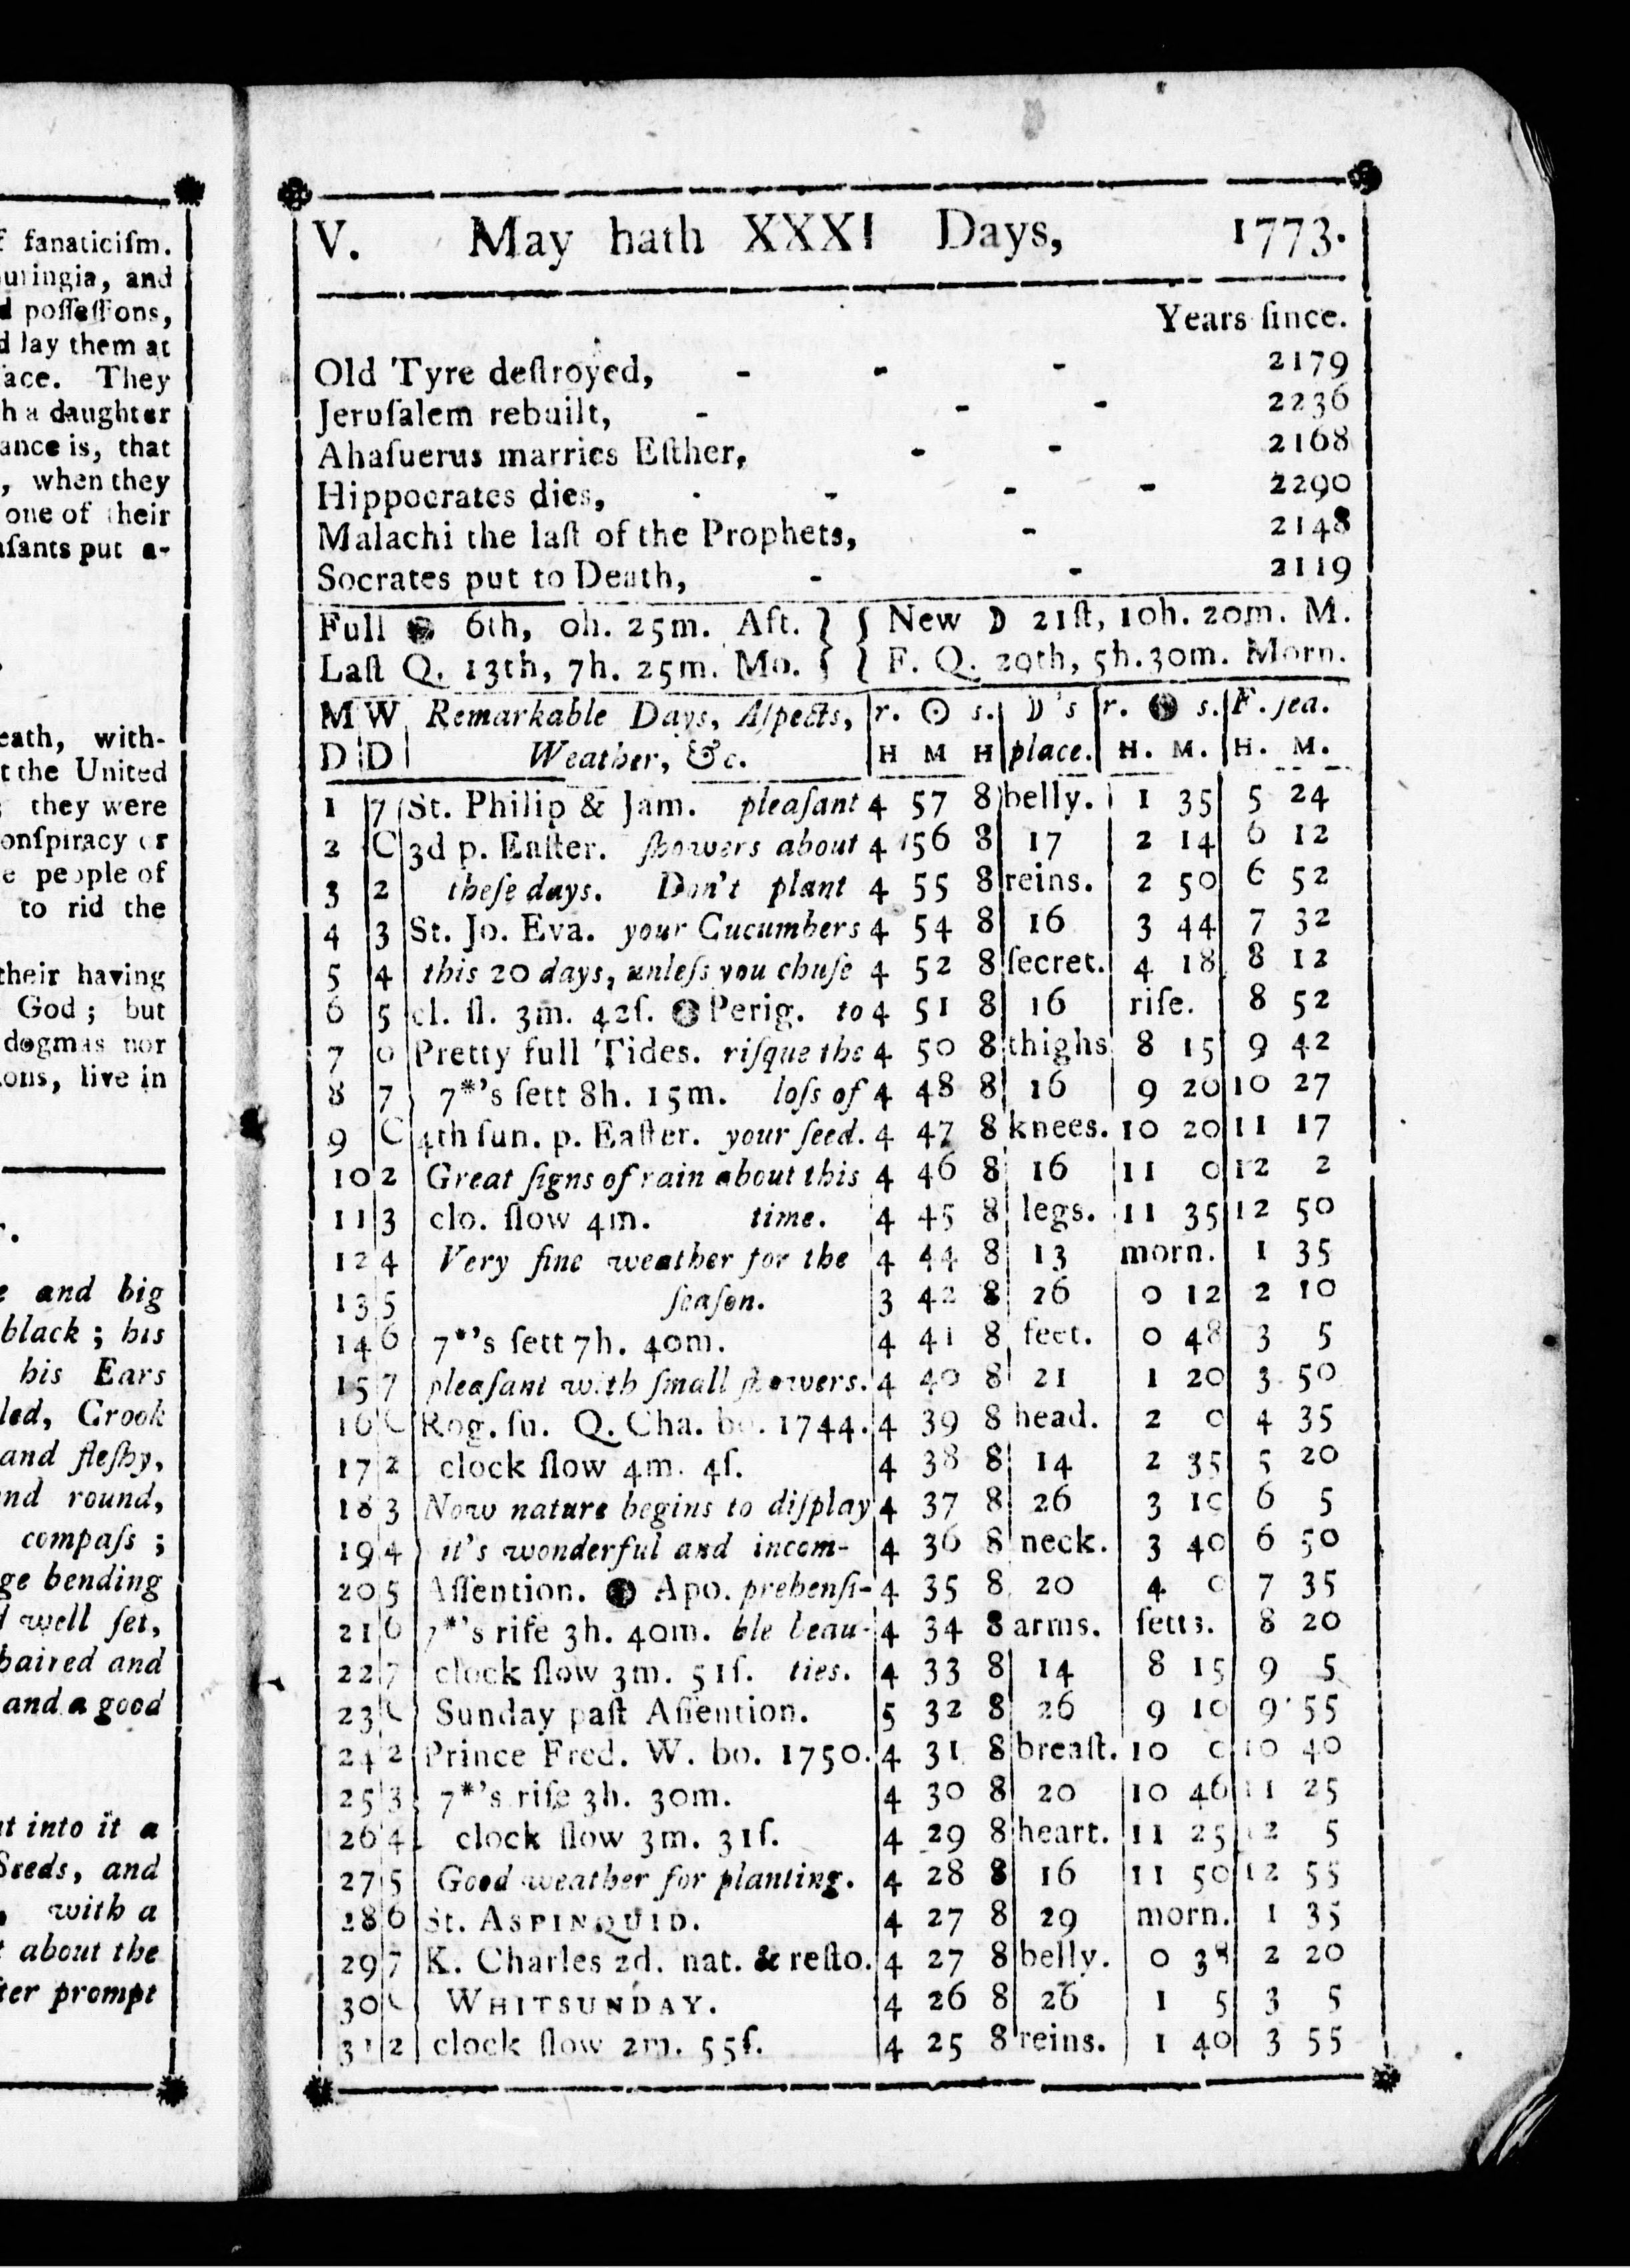 f fanaticiſm.
uringia, and
d poſſeſſions,
d lay them at
face. They
h a daughter
ance is, that
, when they
one of their
aſants put a-
eath, with-
t the United
; they were
onſpiracy or
e people of
to rid the
their having
God; but
dogmas nor
ions, live in
e and big
black; his
his Ears
led, Crook
and fleſhy,
nd round,
compaſs;
ge bending
d well ſet,
haired and
and a good
ut into it a
Seeds, and
, with a
t about the
ter prompt
V. May hath XXXI Days, 1773.
Years ſince.
Old Tyre deſtroyed, - - - 2179
Jeruſalem rebuilt, - - - 2236
Ahaſuerus marries Eſther, - - 2168
Hippocrates dies, - - - - 2290
Malachi the laſt of the Prophets, - 2148
Socrates put to Death, - - 2119
Full ● 6th, 0h. 25m. Aft. } { New ☽ 21ſt, 10h. 20m. M.
Laſt Q. 13th, 7h. 25m. Mo. } { F. Q. 29th, 5h. 30m. Morn.
M W Remarkable Days, Aſpects, r. ☉ s. ☽'s r. ● s. F. ſea.
D D Weather, &c. H M H place. H. M. H. M.
1 7 St. Philip & Jam. pleaſant 4 57 8 belly. 1 35 5 24
2 C 3d p. Eaſter. ſhowers about 4 56 8 17 2 14 6 12
3 2 theſe days. Don't plant 4 55 8 reins. 2 50 6 52
4 3 St. Jo. Eva. your Cucumbers 4 54 8 16 3 44 7 32
5 4 this 20 days, unleſs you chuſe 4 52 8 ſecret. 4 18 8 12
6 5 cl. ſl. 3m. 42ſ. ● Perig. to 4 51 8 16 riſe. 8 52
7 6 Pretty full Tides. riſque the 4 50 8 thighs 8 15 9 42
8 7 7*'s ſett 8h. 15m. loſs of 4 48 8 16 9 20 10 27
9 C 4th ſun. p. Eaſter. your ſeed. 4 47 8 knees. 10 20 11 17
10 2 Great ſigns of rain about this 4 46 8 16 11 0 12 2
11 3 clo. ſlow 4m. time. 4 45 8 legs. 11 35 12 50
12 4 Very fine weather for the 4 44 8 13 morn. 1 35
13 5 ſeaſon. 3 42 8 26 0 12 2 10
14 6 7*'s ſett 7h. 40m. 4 41 8 feet. 0 48 3 5
15 7 pleaſant with ſmall ſhowers. 4 40 8 21 1 20 3 50
16 C Rog. ſu. Q. Cha. bo. 1744. 4 39 8 head. 2 0 4 35
17 2 clock ſlow 4m. 4ſ. 4 38 8 14 2 35 5 20
18 3 Now nature begins to diſplay 4 37 8 26 3 10 6 5
19 4 it's wonderful and incom- 4 36 8 neck. 3 40 6 50
20 5 Aſſention. ● Apo. prehenſi- 4 35 8 20 4 0 7 35
21 6 7*'s riſe 3h. 40m. ble beau- 4 34 8 arms. ſetts. 8 20
22 7 clock ſlow 3m. 51ſ. ties. 4 33 8 14 8 15 9 5
23 C Sunday paſt Aſſention. 5 32 8 26 9 10 9 55
24 2 Prince Fred. W. bo. 1750. 4 31 8 breaſt. 10 0 10 40
25 3 7*'s riſe 3h. 30m. 4 30 8 20 10 46 11 25
26 4 clock ſlow 3m. 31ſ. 4 29 8 heart. 11 25 12 5
27 5 Good weather for planting. 4 28 8 16 11 50 12 55
28 6 St. ASPINQUID. 4 27 8 29 morn. 1 35
29 7 K. Charles 2d. nat. & reſto. 4 27 8 belly. 0 38 2 20
30 C WHITSUNDAY. 4 26 8 26 1 5 3 5
31 2 clock ſlow 2m. 55ſ. 4 25 8 reins. 1 40 3 55